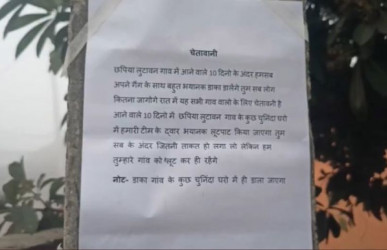 चेतावानी
छपिया लुटावन गांव में आने वाले 10 दिनो के अंदर हमसब
अपने गैंग के साथ बहुत भयानक डाका डालेंगे तुम सब लोग
कितना जागोगे रात में यह सभी गांव वालो के लिए चेतावनी है
आने वाले 10 दिनो में छपिया लुटावन गांव के कुछ चुनिंदा घरो
में हमारी टीम के द्वार भयानक लूटपाट किया जाएगा तुम
सब के अंदर जितनी ताकत हो लगा लो लेकिन हम
तुम्हारे गांव को लूट कर ही रहेंगे
नोट- डाका गांव के कुछ चुनिंदा घरो में ही डाला जाएगा